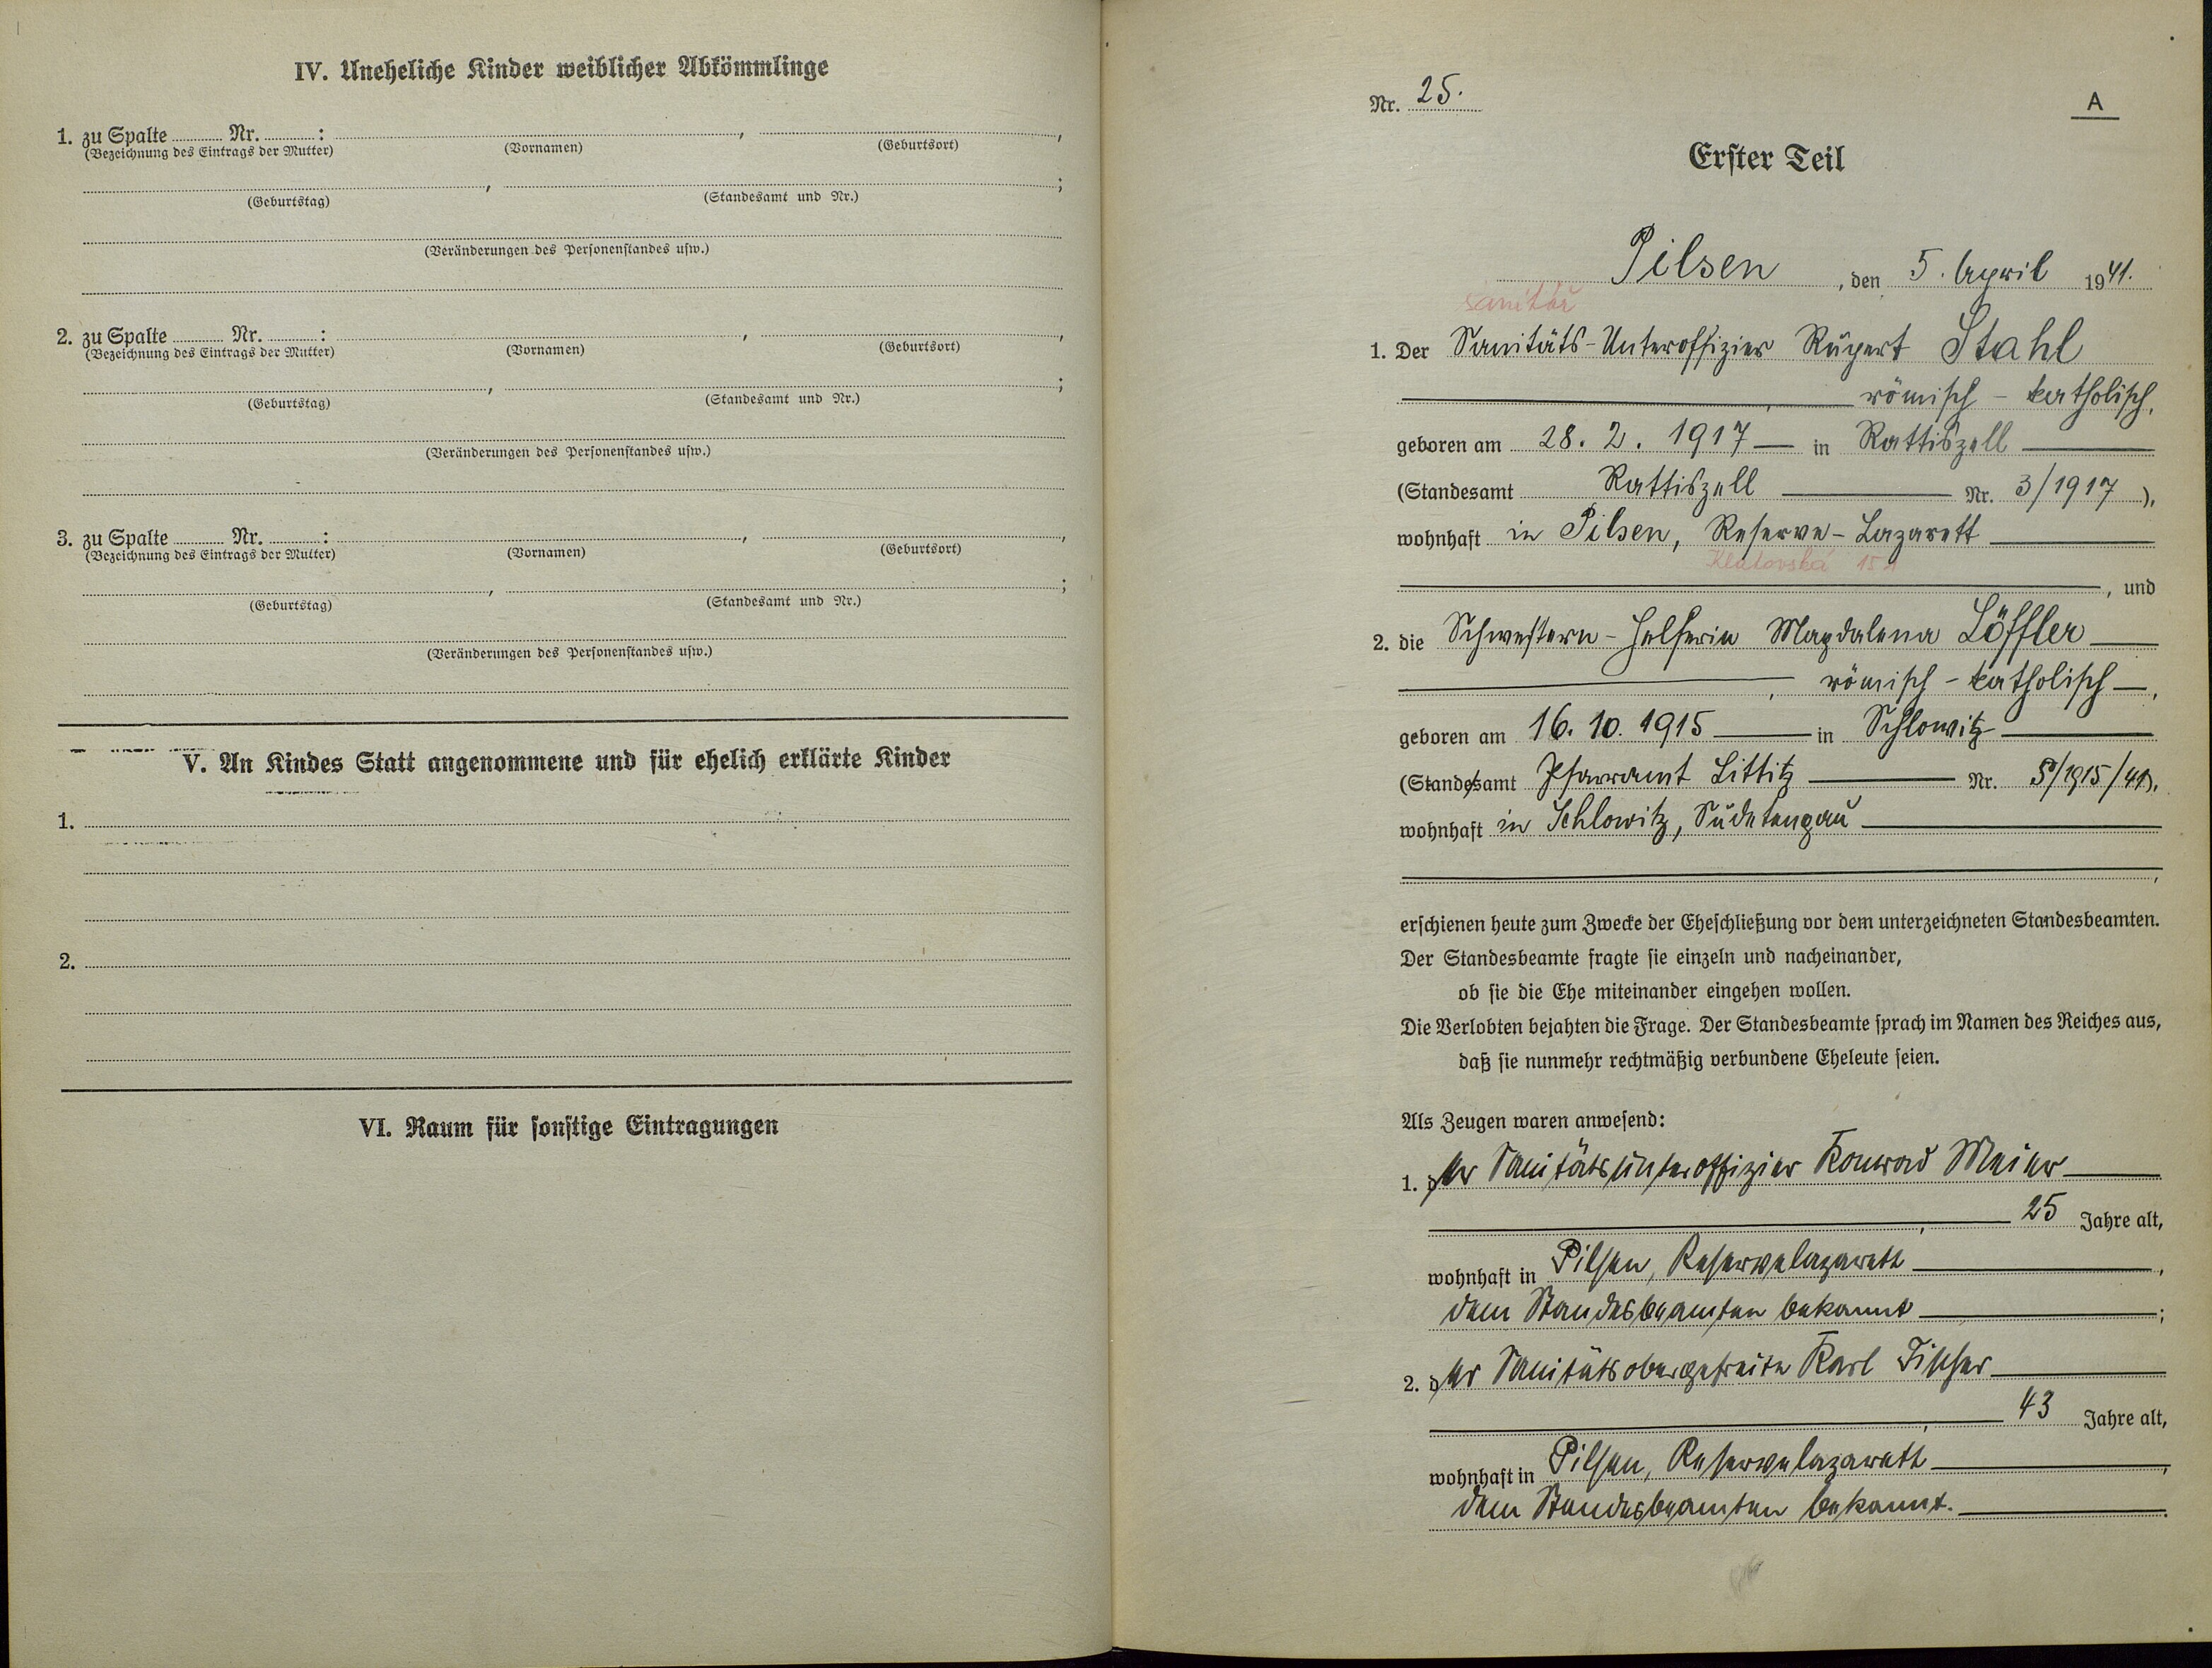 IV. Uneheliche Kinder weiblicher Abkömmlinge
1. zu Spalte ........ Nr. ........ : ........, ........,
(Bezeichnung des Eintrags der Mutter) (Vornamen) (Geburtsort)
........, ........;
(Geburtstag) (Standesamt und Nr.)
(Veränderungen des Personenstandes usw.)
2. zu Spalte ........ Nr. ........ : ........, ........,
(Bezeichnung des Eintrags der Mutter) (Vornamen) (Geburtsort)
........, ........;
(Geburtstag) (Standesamt und Nr.)
(Veränderungen des Personenstandes usw.)
3. zu Spalte ........ Nr. ........ : ........, ........,
(Bezeichnung des Eintrags der Mutter) (Vornamen) (Geburtsort)
........, ........;
(Geburtstag) (Standesamt und Nr.)
(Veränderungen des Personenstandes usw.)
V. An Kindes Statt angenommene und für ehelich erklärte Kinder
1.
2.
VI. Raum für sonstige Eintragungen
Nr. 25.
A
Erster Teil
Pilsen, den 5. April 1941.
sanitář
1. Der Sanitäts-Unteroffizier Rupert Stahl
römisch-katholisch,
geboren am 28. 2. 1917 in Rattiszell
(Standesamt Rattiszell Nr. 3/1917),
wohnhaft in Pilsen, Reserve-Lazarett
Klatovská
, und
2. die Schwestern-Helferin Magdalena Löffler
, römisch-katholisch,
geboren am 16. 10. 1915 in Schlowitz
(Standesamt Pfarramt Littitz Nr. 5/1915/41),
wohnhaft in Schlowitz, Sudetengau
erschienen heute zum Zwecke der Eheschließung vor dem unterzeichneten Standesbeamten.
Der Standesbeamte fragte sie einzeln und nacheinander,
ob sie die Ehe miteinander eingehen wollen.
Die Verlobten bejahten die Frage. Der Standesbeamte sprach im Namen des Reiches aus,
daß sie nunmehr rechtmäßig verbundene Eheleute seien.
Als Zeugen waren anwesend:
1. der Sanitätsunteroffizier Konrad Meier
, 25 Jahre alt,
wohnhaft in Pilsen, Reservelazarett,
dem Standesbeamten bekannt;
2. der Sanitätsobergefreite Karl Fischer
, 43 Jahre alt,
wohnhaft in Pilsen, Reservelazarett,
dem Standesbeamten bekannt.